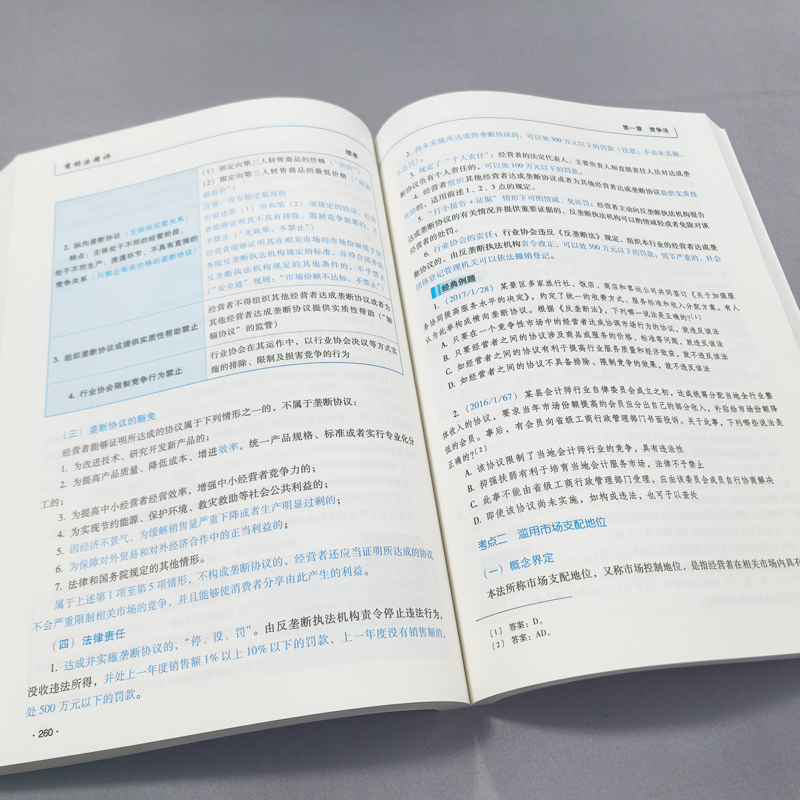 商经法精讲
续表
2. 纵向垄断协议(主体间买卖关系)
特点:主体处于不同的经营阶段,
处于不同生产、流通环节,不具有直接的
竞争关系(只禁止有关价格的垄断协议)
(1)固定向第三人转售商品的价格(“固价”)
(2)限定向第三人转售商品的最低价格(“限制
最低价”)
注意:没有限定最高价
对前述第(1)项和第(2)项规定的协议,经营
者能够证明其不具有排除、限制竞争效果的,不
予禁止(“无效果,不禁止”)
经营者能够证明其在相关市场的市场份额低于国
务院反垄断执法机构规定的标准,并符合国务院
反垄断执法机构规定的其他条件的,不予禁止
(“安全港”规则:“市场份额不达标,不禁止”)
3. 组织垄断协议或提供实质性帮助禁止
经营者不得组织其他经营者达成垄断协议或者为
其他经营者达成垄断协议提供实质性帮助(“轴
辐协议”的监管)
4. 行业协会限制竞争行为禁止
行业协会在其运作中,以行业协会决议等方式实
施的排除、限制及损害竞争的行为
(三)垄断协议的豁免
经营者能够证明所达成的协议属于下列情形之一的,不属于垄断协议:
1. 为改进技术、研究开发新产品的;
2. 为提高产品质量、降低成本、增进效率,统一产品规格、标准或者实行专业化分
工的;
3. 为提高中小经营者经营效率,增强中小经营者竞争力的;
4. 为实现节约能源、保护环境、救灾救助等社会公共利益的;
5. 因经济不景气,为缓解销售量严重下降或者生产明显过剩的;
6. 为保障对外贸易和对外经济合作中的正当利益的;
7. 法律和国务院规定的其他情形。
属于上述第1项至第5项情形,不构成垄断协议的,经营者还应当证明所达成的协议
不会严重限制相关市场的竞争,并且能够使消费者分享由此产生的利益。
(四)法律责任
1. 达成并实施垄断协议的,“停、没、罚”。由反垄断执法机构责令停止违法行为,
没收违法所得,并处上一年度销售额1%以上10%以下的罚款,上一年度没有销售额的,
处500万元以下的罚款。
·260·
第一章 竞争法
2. 尚未实施所达成的垄断协议的,可以处300万元以下的罚款(注意:不是未实施,
不处罚)。
3. 规定了“个人责任”:经营者的法定代表人、主要负责人和直接责任人员对达成垄
断协议负有个人责任的,可以处100万元以下的罚款。
4. 经营者组织其他经营者达成垄断协议或者为其他经营者达成垄断协议提供实质性
帮助的,适用前述1、2、3点的规定。
5. “打小报告+证据”情形下可酌情减、免处罚:经营者主动向反垄断执法机构报告
达成垄断协议的有关情况并提供重要证据的,反垄断执法机构可以酌情减轻或者免除对该
经营者的处罚。
6. 行业协会的责任:行业协会违反《反垄断法》规定,组织本行业的经营者达成垄
断协议的,由反垄断执法机构责令改正,可以处300万元以下的罚款;情节严重的,社会
团体登记管理机关可以依法撤销登记。
经典例题
1. (2017/1/28)某景区多家旅行社、饭店、商店和客运公司共同签订《关于加强服
务协同提高服务水平的决定》,约定了统一的收费方式、服务标准和收入分配方案。有人
认为此举构成横向垄断协议。根据《反垄断法》,下列哪一说法是正确的?[1]
A. 只要在一个竞争性市场中的经营者达成协调市场行为的协议,就违反该法
B. 只要经营者之间的协议涉及商品或服务的价格、标准等问题,就违反该法
C. 如经营者之间的协议有利于提高行业服务质量和经济效益,就不违反该法
D. 如经营者之间的协议不具备排除、限制竞争的效果,就不违反该法
2. (2016/1/67)某县会计师行业自律委员会成立之初,达成统筹分配当地全行业整
体收入的协议,要求当年市场份额提高的会员应分出自己的部分收入,补贴给市场份额降
低的会员。事后,有会员向省级工商行政管理部门书面投诉。关于此事,下列哪些说法是
正确的?[2]
A. 该协议限制了当地会计师行业的竞争,具有违法性
B. 抑强扶弱有利于培育当地会计服务市场,法律不予禁止
C. 此事不能由省级工商行政管理部门受理,应由该委员会成员自行协商解决
D. 即使该协议尚未实施,如构成违法,也可予以查处
考点二 滥用市场支配地位
(一)概念界定
本法所称市场支配地位,又称市场控制地位,是指经营者在相关市场内具有
[1] 答案:D。
[2] 答案:AD。